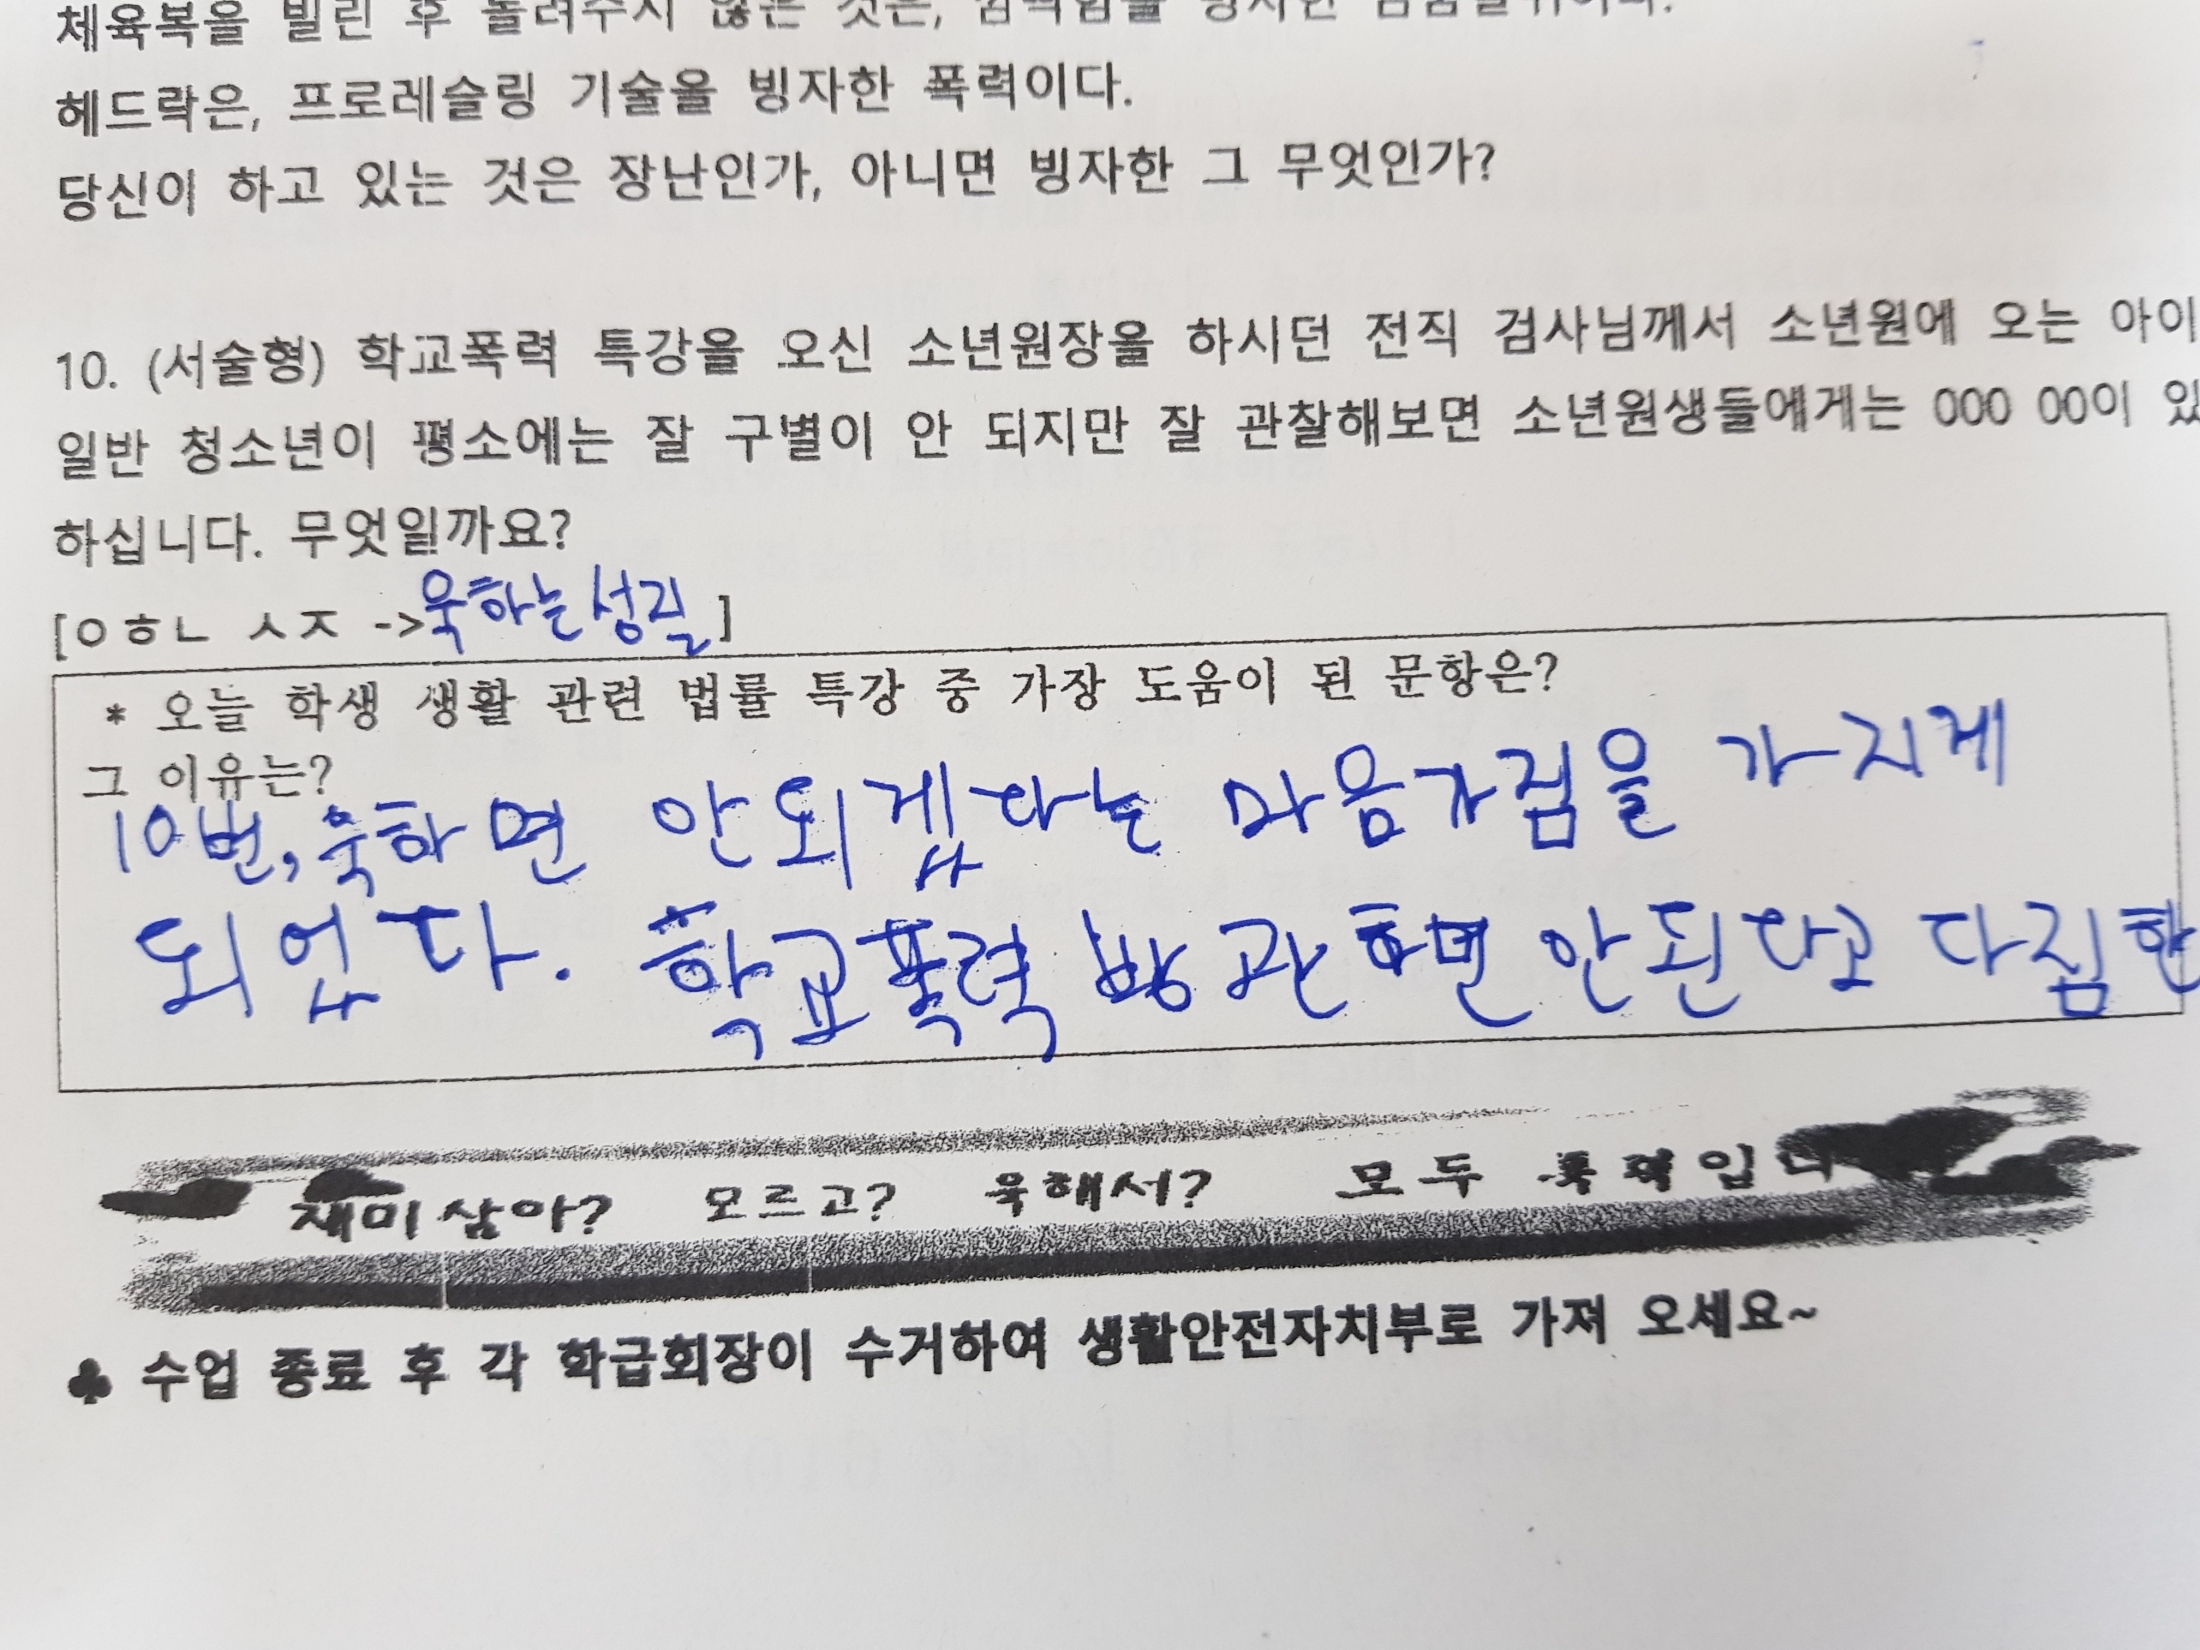 체육복을 빌린 후 돌려주지 않은 것은,
헤드락은, 프로레슬링 기술을 빙자한 폭력이다.
당신이 하고 있는 것은 장난인가, 아니면 빙자한 그 무엇인가?
10. (서술형) 학교폭력 특강을 오신 소년원장을 하시던 전직 검사님께서 소년원에 오는 아이
일반 청소년이 평소에는 잘 구별이 안 되지만 잘 관찰해보면 소년원생들에게는 OOO OO이 있
하십니다. 무엇일까요?
[ㅇㅎㄴ ㅅㅈ -> 욱하는 성질]
* 오늘 학생 생활 관련 법률 특강 중 가장 도움이 된 문항은?
그 이유는?
10번, 욱하면 안되겠다는 마음가짐을 가지게
되었다. 학교폭력 방관하면 안된다고 다짐한
재미삼아? 모르고? 욱해서? 모두 폭력입니
♣ 수업 종료 후 각 학급회장이 수거하여 생활안전자치부로 가져 오세요~